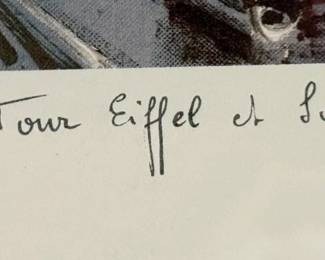 Tour Eiffel et